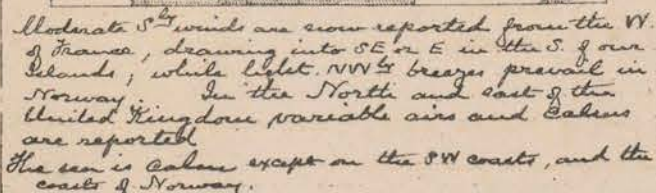 Moderate S.ly winds are now reported from the W.
of France, drawing into SE or E in the S. of our
Islands; while light NW.ly breezes prevail in
Norway. In the North and east of the
United Kingdom variable airs and Calms
are reported
The sea is Calm except on the SW coasts, and the
coasts of Norway.